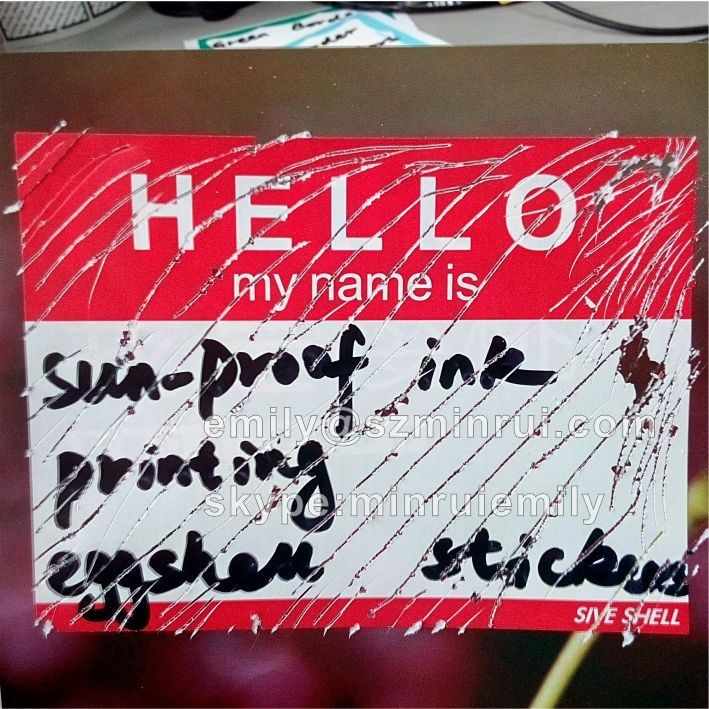 Green Border
HELLO
my name is
sun-proof ink
emily@szminrui.com
printing
skype:minruiemily
eggshell stickers
SIVE SHELL